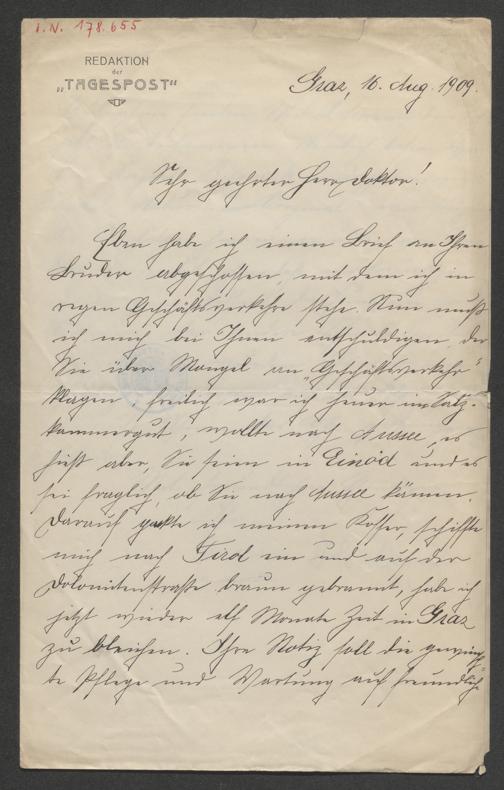 I.N. 178.655
REDAKTION
der
„TAGESPOST“
Graz, 16. Aug. 1909.
Sehr geehrter Herr Doktor!
Eben habe ich einen Brief an Ihren
Bruder abgeschossen, mit dem ich in
regem Geschäftsverkehre stehe. Nun muß
ich mich bei Ihnen entschuldigen, der
Sie über Mangel an „Geschäftsverkehr“
klagen. Freilich war ich heuer im Salz-
kammergut, wollte nach Aussee, es
hieß aber, Sie seien in Einöd und es
sei fraglich, ob Sie nach Aussee kämen.
Darauf packte ich meinen Koffer, schiffte
mich nach Tirol ein und auf der
Dolomitenstraße braun gebrannt, habe ich
jetzt wieder elf Monate Zeit in Graz
zu bleichen. Ihre Notiz soll die gewünsch-
te Pflege und Wartung auf freundlich